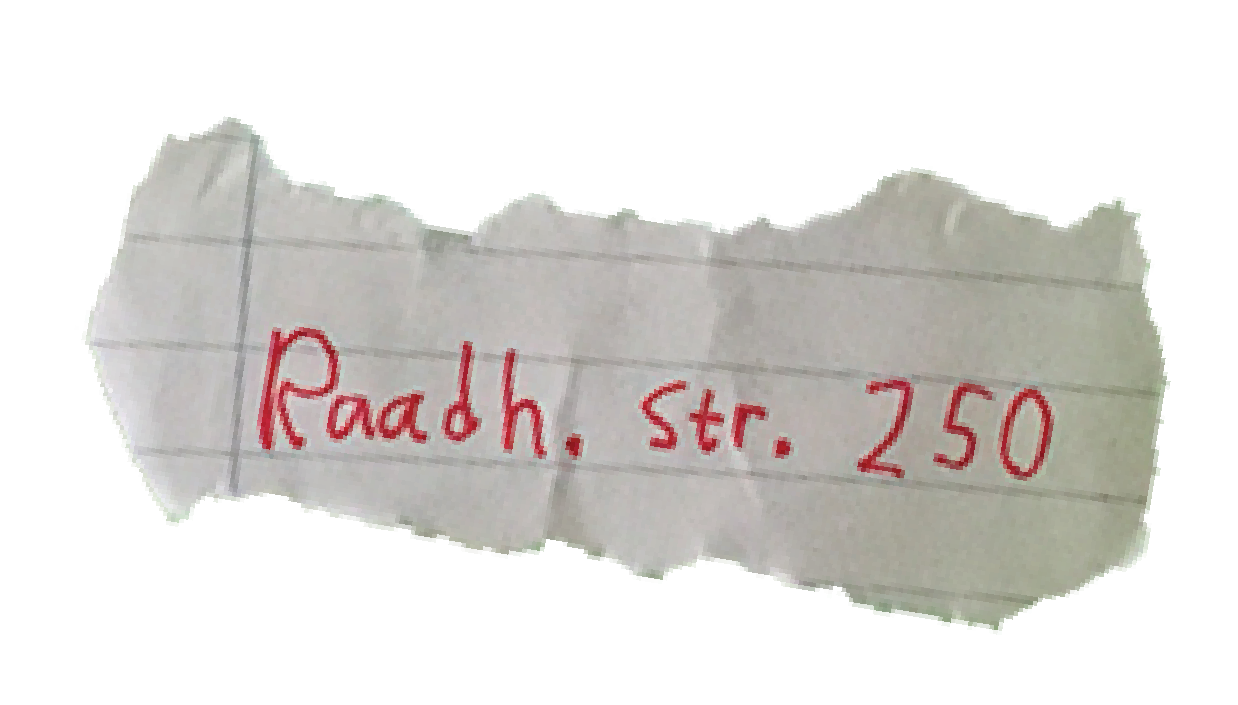 Raadh. str. 250